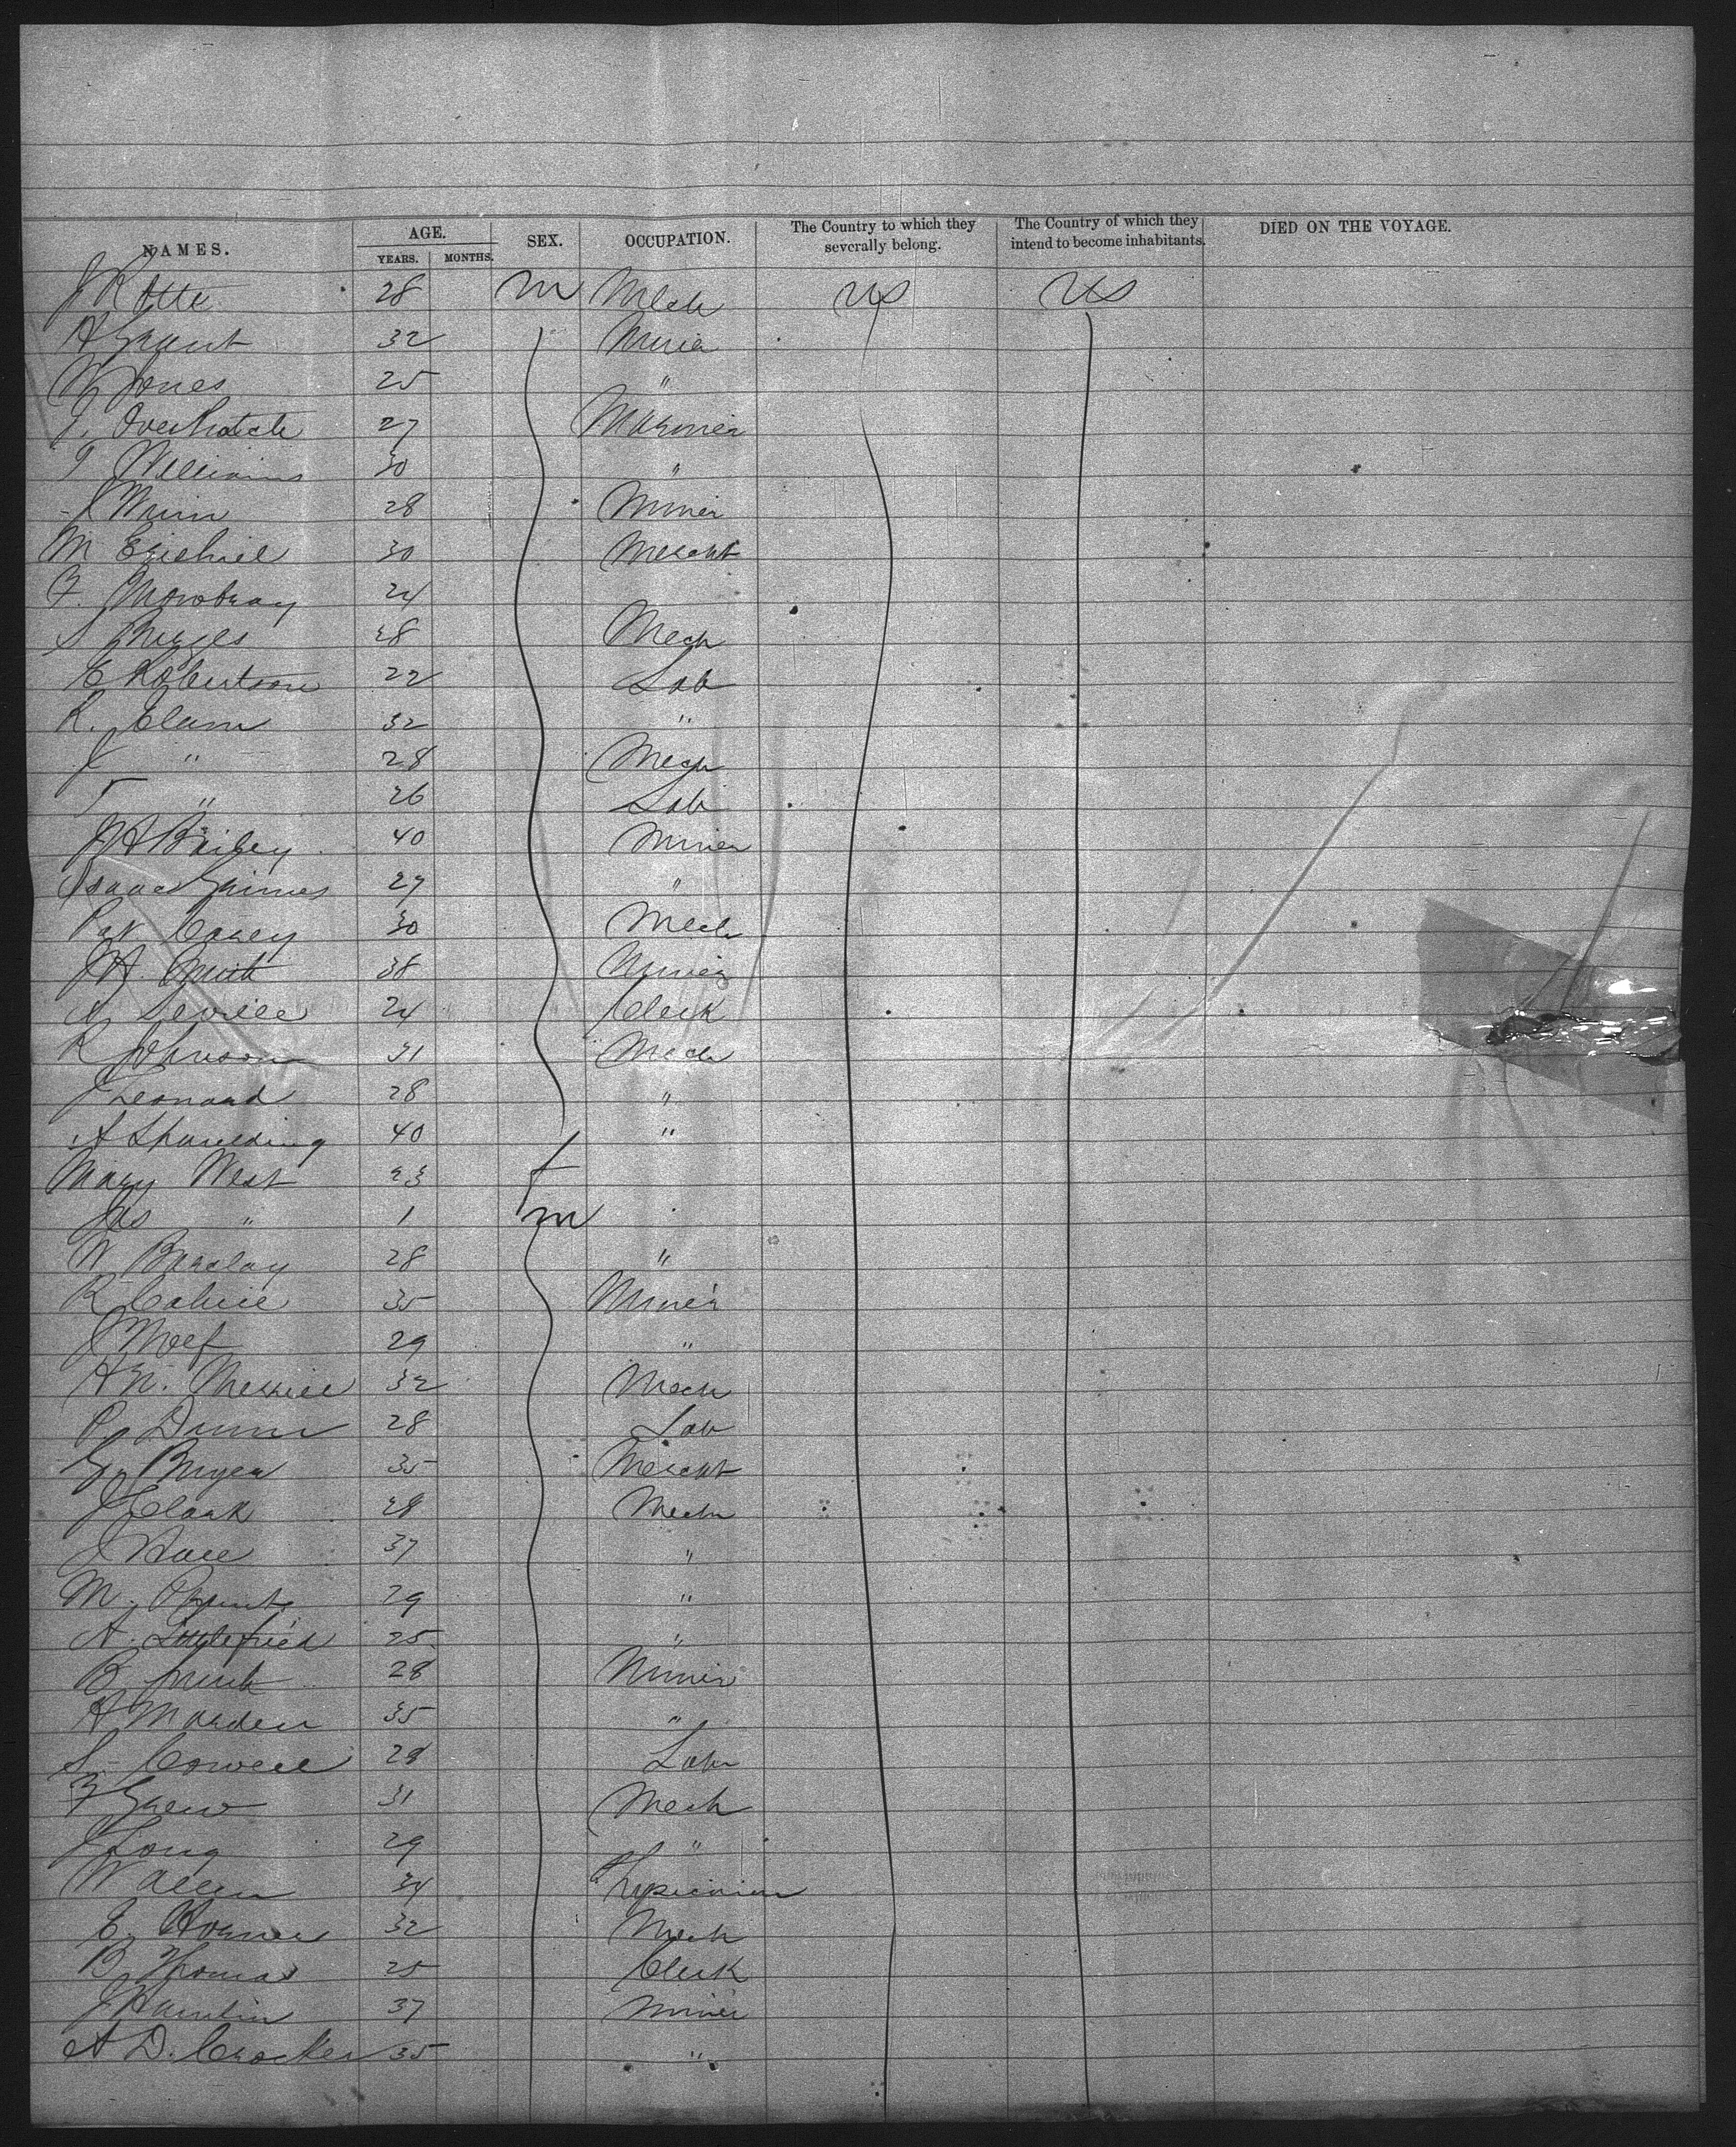 NAMES. AGE. YEARS. MONTHS. SEX. OCCUPATION. The Country to which they severally belong. The Country of which they intend to become inhabitants. DIED ON THE VOYAGE.
J R Otte 28 M Mech US US
A Grant 32 Miner
W Jones 25 "
J. Overhatch 27 Mariner
T Williams 30 "
J Winn 28 Miner
M Ezichiel 30 Mercht
F. Mowbray 24
S 28 Mech
E Robertson 22 Lab
R. Elam 32 "
J " 28 Mech
T " 26 Lab
J A Bailey 40 Miner
Isaac Grimes 27 "
Pat Carey 30 Mech
J H. Smith 38 Miner
Seville 24 Clerk
R Johnson 31 Mech
J Leonard 28 "
A Spaulding 40 "
Mary West 23 f
Jas " 1 m
W Barclay 28 "
R Cahill 35 Miner
J Wolf 29 "
H N. Merrill 32 Mech
P Dunn 28 Lab
G Bryer 35 Mercht
J Clark 28 Mech
J Hall 37 "
M. 29 "
A. Littlefield 25 "
B Smith 28 Miner
H Marden 35 "
S. Cowell 28 Lab
F Grew 31 Mech
J Long 29 "
W Allen 34 Physician
E. Horner 32 Mech
B Thomas 25 Clerk
J Hamlin 37 Miner
A D. Crocker 35 "